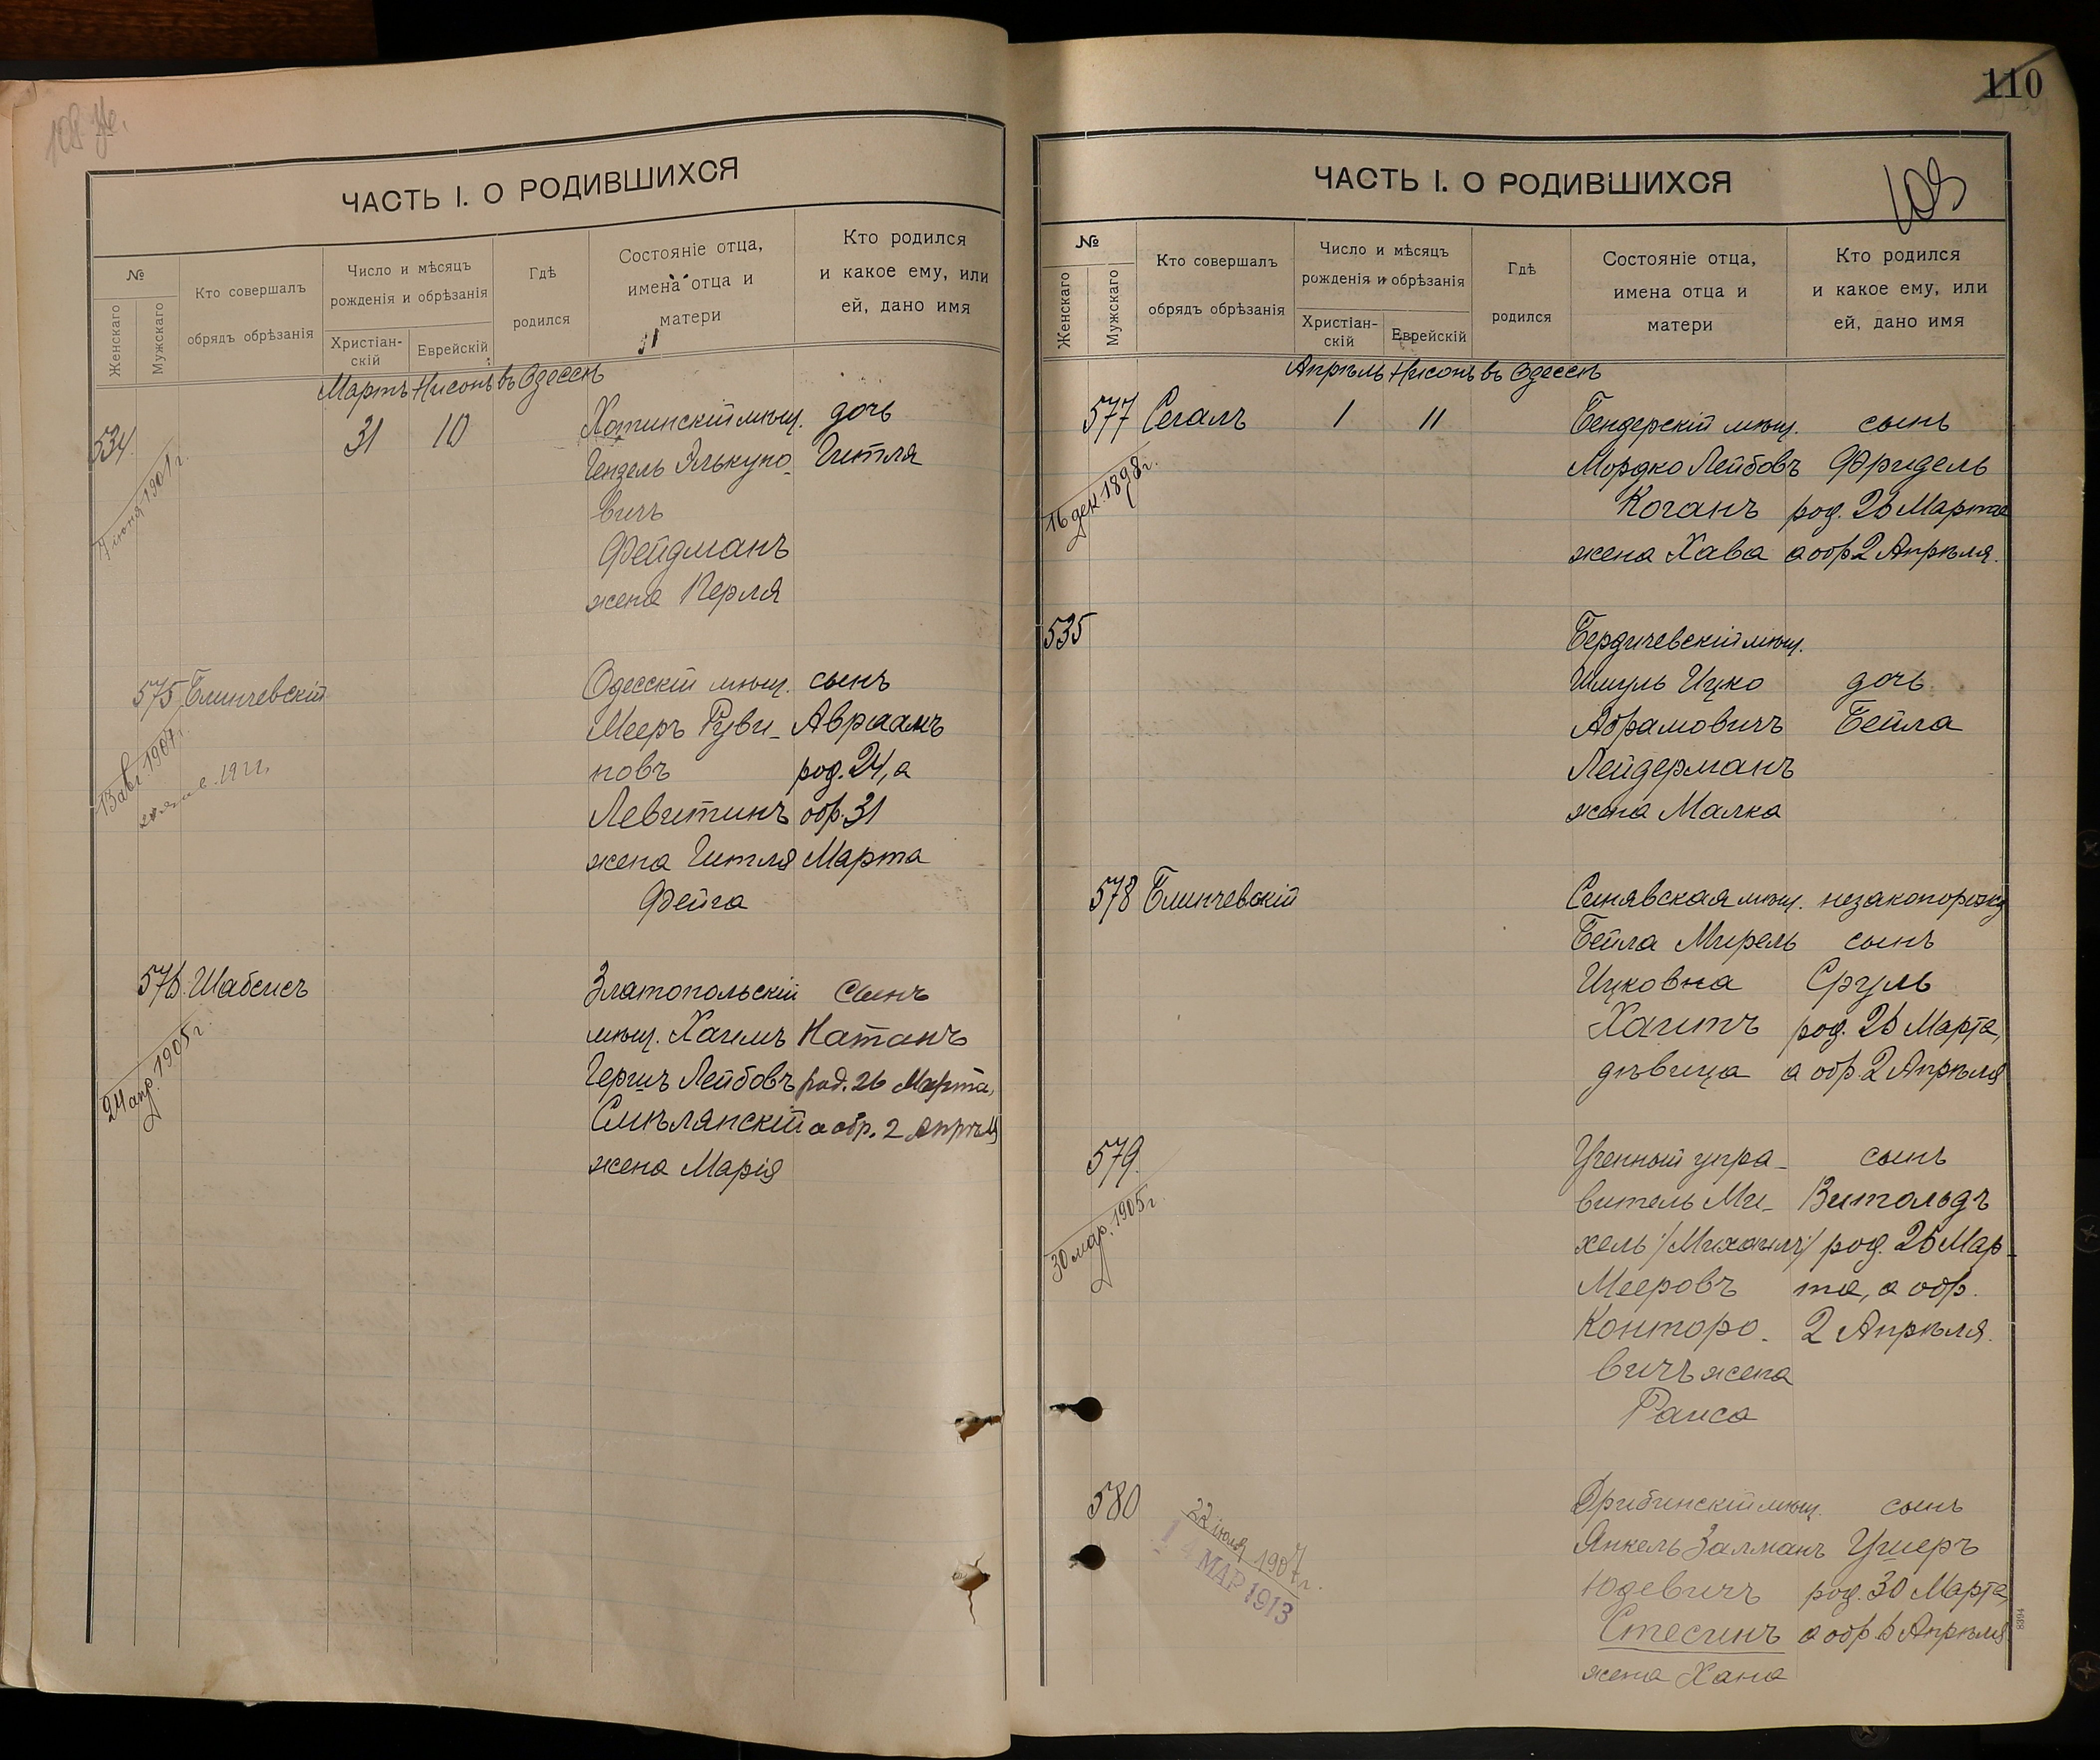 108
ЧАСТЬ I. О РОДИВШИХСЯ
№
Женскаго
Мужскаго
Кто совершалъ
обрядъ обрѣзанія
Число и мѣсяцъ
рожденія и обрѣзанія
Христіан-
скій
Еврейскій
Гдѣ
родился
Состояніе отца,
имена отца и
матери
Кто родился
и какое ему, или
ей, дано имя
Мартъ Нисонъ въ Одессѣ
534
31
10
Хотинскій мѣщ. дочь
Гендель Элькуно- Гитля
вичъ
Фейдманъ
жена Перля
7 июня 1901 г.
575 Блинчевскій
Одесскій мѣщ. сынъ
Мееръ Руви- Авраамъ
новъ род. 24, а
Левитинъ обр. 31
жена Гитля Марта
Фейга
13 авг 1907 г.
576. Шабсисъ
Златопольскій сынъ
мѣщ. Хаимъ Натанъ
Гершъ Лейбовъ род. 26 Марта,
Смѣлянскій а обр. 2 Апрѣля
жена Марія
24 апр. 1905 г.
110
109
ЧАСТЬ I. О РОДИВШИХСЯ
№
Женскаго
Мужскаго
Кто совершалъ
обрядъ обрѣзанія
Число и мѣсяцъ
рожденія и обрѣзанія
Христіан-
скій
Еврейскій
Гдѣ
родился
Состояніе отца,
имена отца и
матери
Кто родился
и какое ему, или
ей, дано имя
Апрѣль Нисонъ въ Одессѣ
577 Сегалъ
1
11
Бендерскій мѣщ. сынъ
Мордко Лейбовъ Фридель
Коганъ род. 26 Марта
жена Хава а обр 2 Апрѣля.
16 дек. 1898 г.
535
Бердичевскій мѣщ.
Шмуль Ицко дочь
Абрамовичъ Бейла
Лейдерманъ
жена Малка
578 Блинчевскій
Синявская мѣщ. незаконорожд
Бейла Мирель сынъ
Ицковна Сруль
Хаитъ род. 26 Марта,
дѣвица а обр. 2 Апрѣля
579.
Ученный упра- сынъ
витель Ми- Витольдъ
хель /Михаилъ/ род. 26 Мар-
Мееровъ та, а обр.
Конторо- 2 Апрѣля.
вичъ жена
Раиса
30 мар. 1905 г.
580
Дрибинскій мѣщ. сынъ
Янкель Залманъ Ушеръ
Юдевичъ род. 30 Марта,
Стесинъ а обр 6 Апрѣля
жена Хана
22 июля 1907 г.
14 МАР 1913
8394